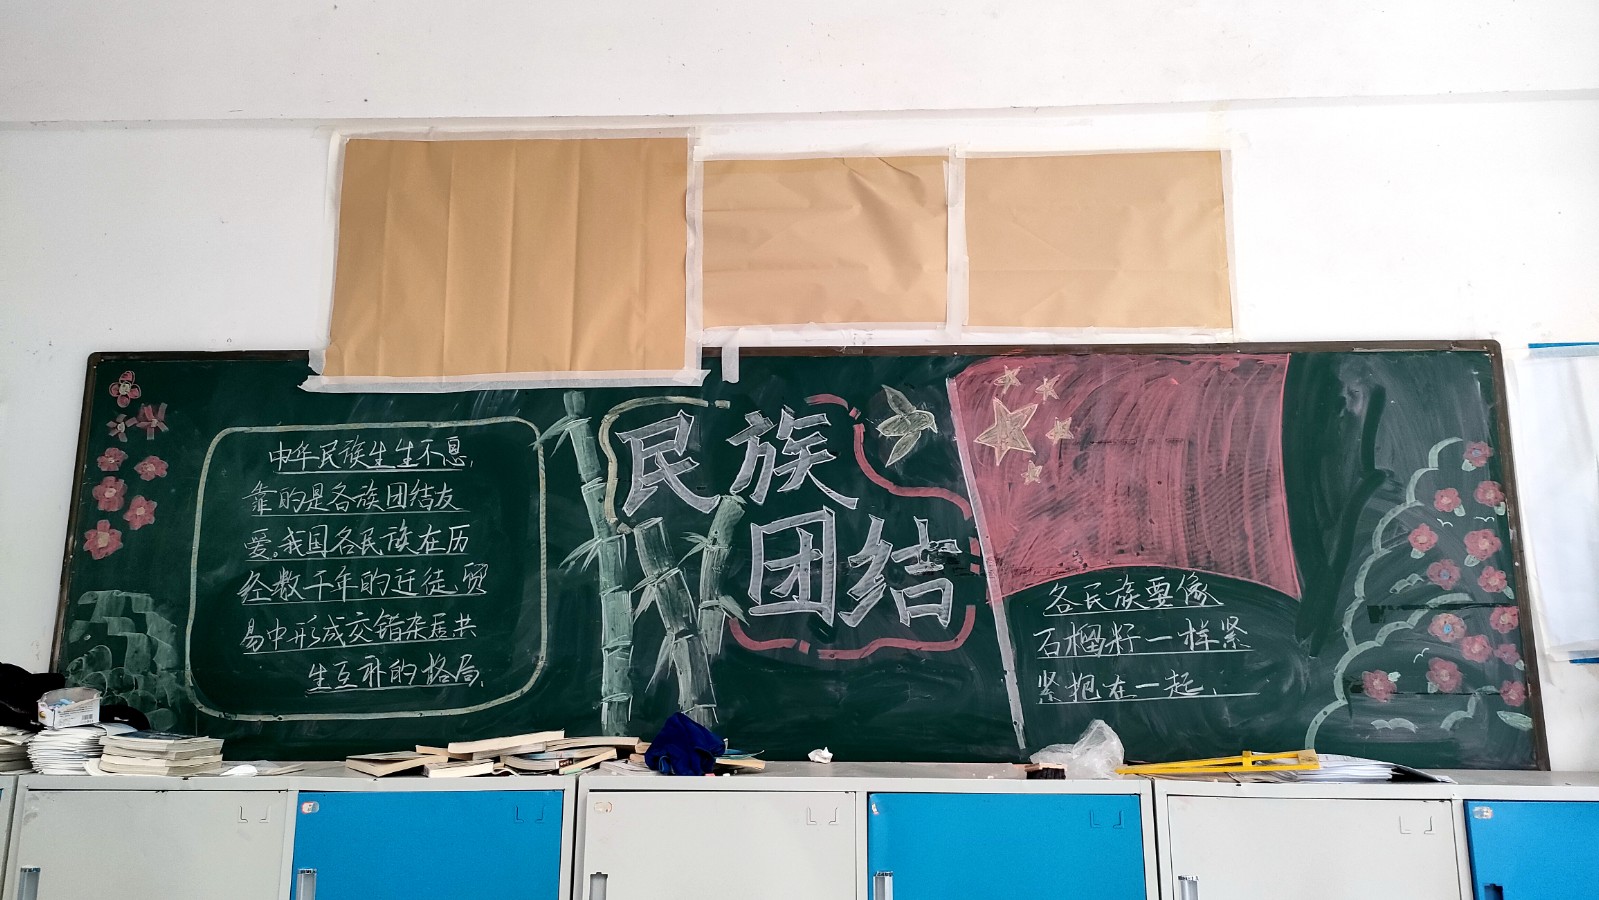 中华民族生生不息,
靠的是各族团结友
爱。我国各民族在历
经数千年的迁徙、贸
易中形成交错杂居共
生互补的格局.
民族
团结
各民族要像
石榴籽一样紧
紧抱在一起.